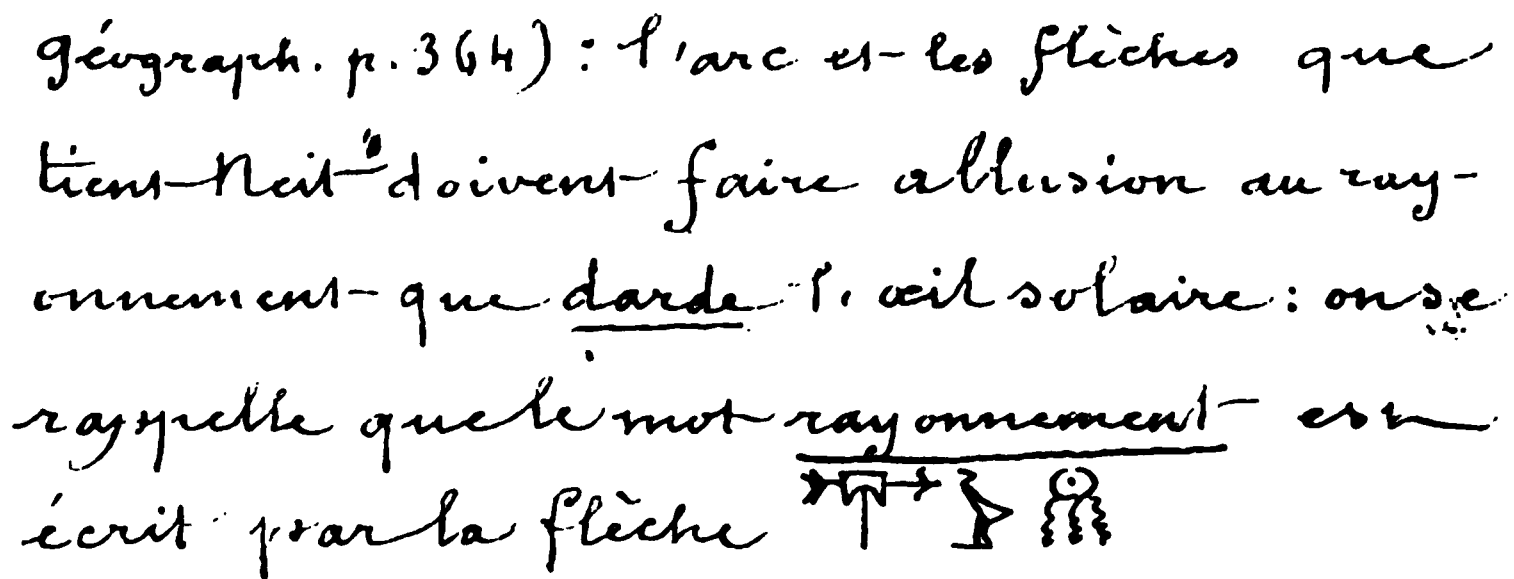 géograph. p. 364) : l'arc et les flèches que
tient Neit doivent faire allusion au ray-
onnement que darde l'œil solaire : on se
rappelle que le mot rayonnement est
écrit par la flèche